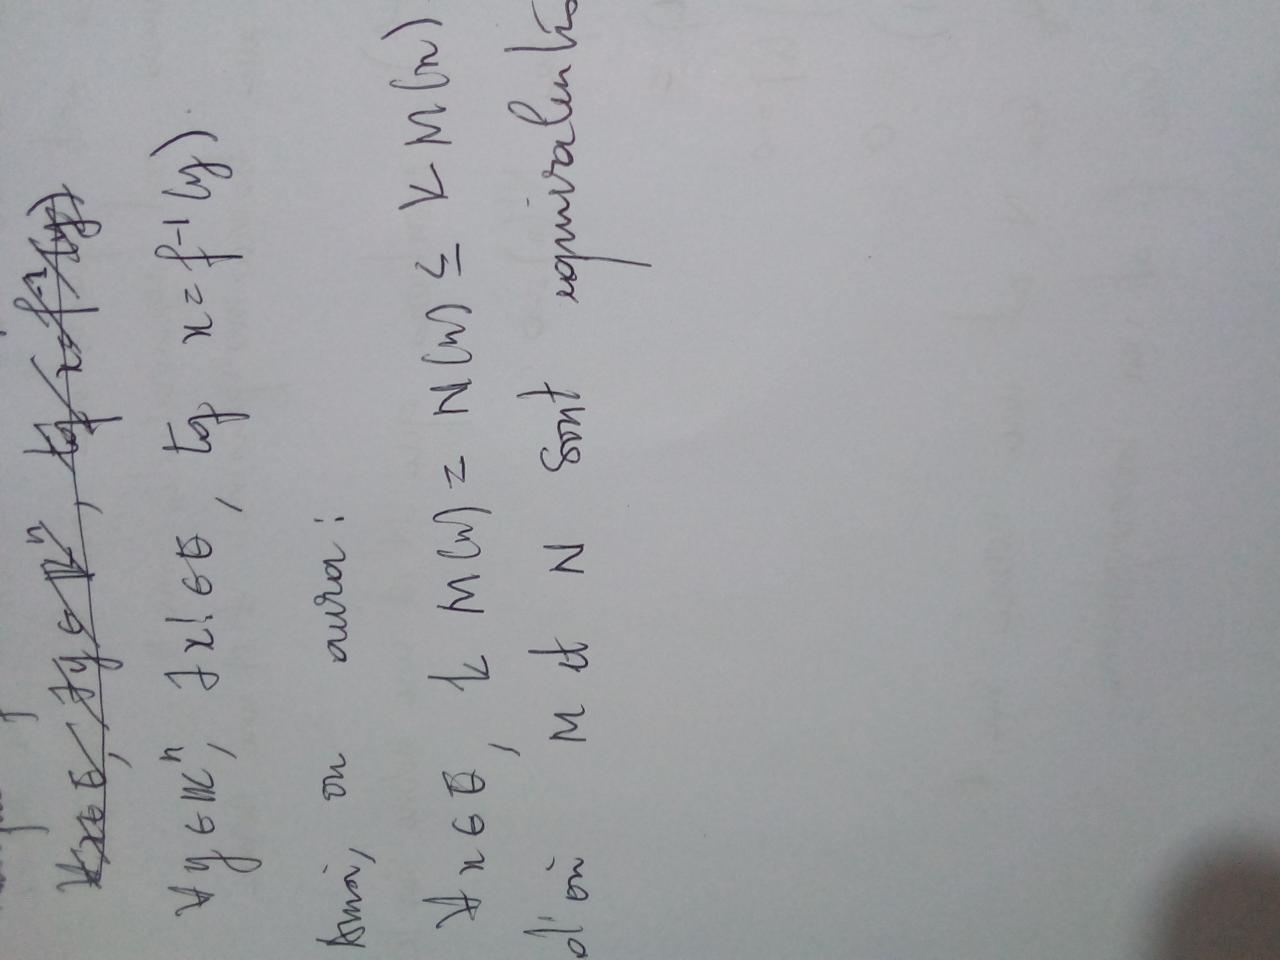 ∀x∈E, ∃y∈𝕂ⁿ, tq x=f⁻¹(y)
∀y∈𝕂ⁿ, ∃x!∈E, tq x=f⁻¹(y).
Ainsi, on aura :
∀x∈E, k M(x) ≤ N(x) ≤ K M(x)
d'où M et N sont equivalentes